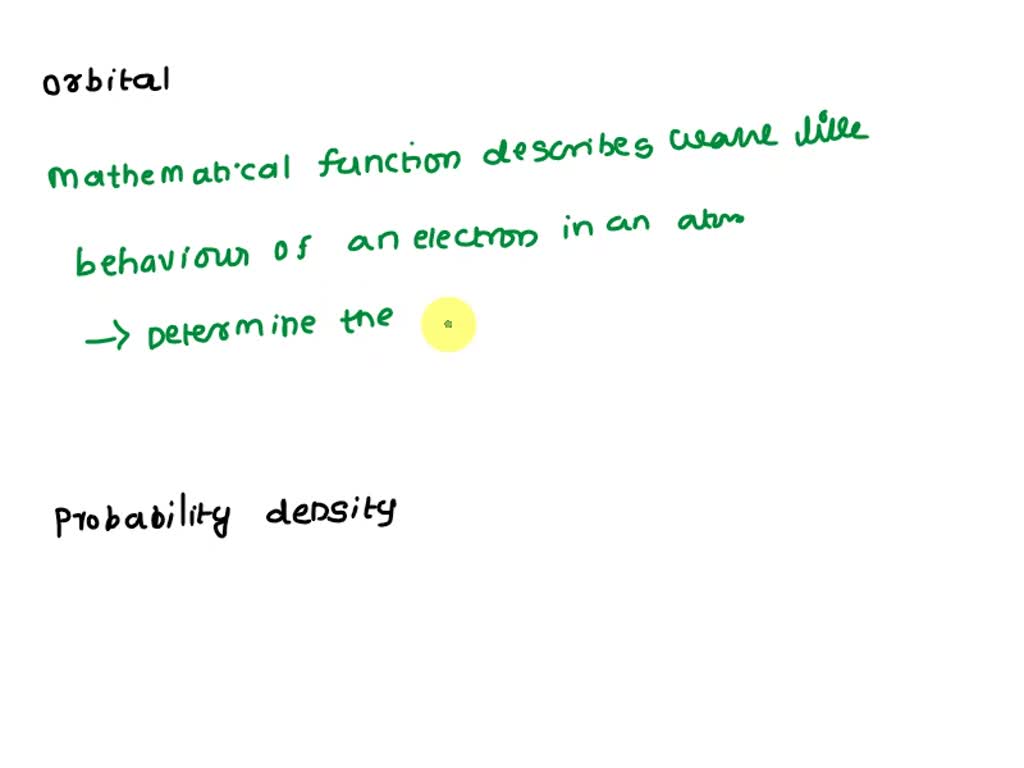 orbital
mathematical function describes wave like
behaviour of an electron in an atom
→ Determine the
Probability density